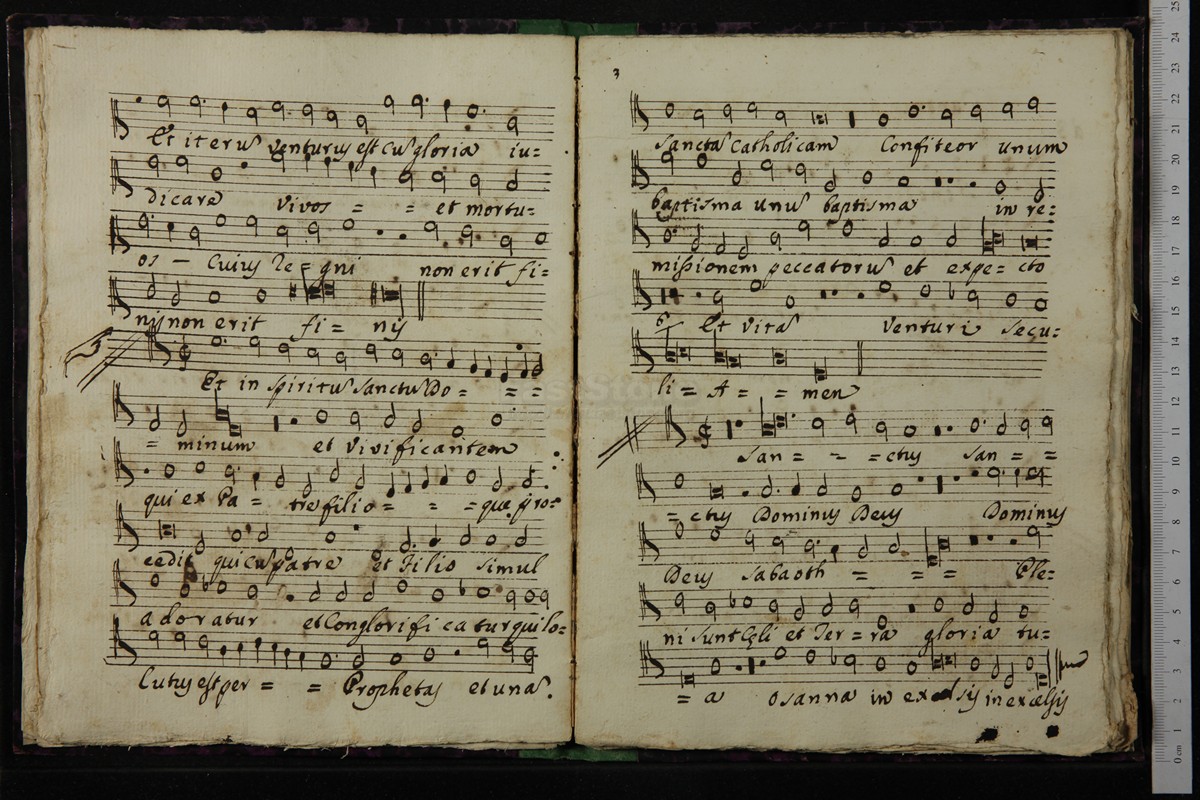 Et iterũ venturus est cũ gloria iu=
dicare vivos = = et mortu=
os - Cuius Re = gni non erit fi=
nis non erit fi= nis
Et in spiritũ Sanctũ Do= = =
= minum et Vivificantem
qui ex Pa = tre filio= = = que pro=
cedit qui cũ patre et Filio simul
adoratur et Conglorificatur qui lo=
Cutus est per = = Prophetas et unã.
3
Sanctã Catholicam Confiteor unum
baptisma unũ baptisma in re=
missionem peccatorũ et expe= cto
Et Vitã Venturi Secu=
li= A = = men
San= - = ctus San= =
= ctus Dominus Deus Dominus
Deus Sabaoth = = = Ple=
ni Sunt Cęli et Ter=ra gloria tu=
= a osanna in excelsis in excælsis